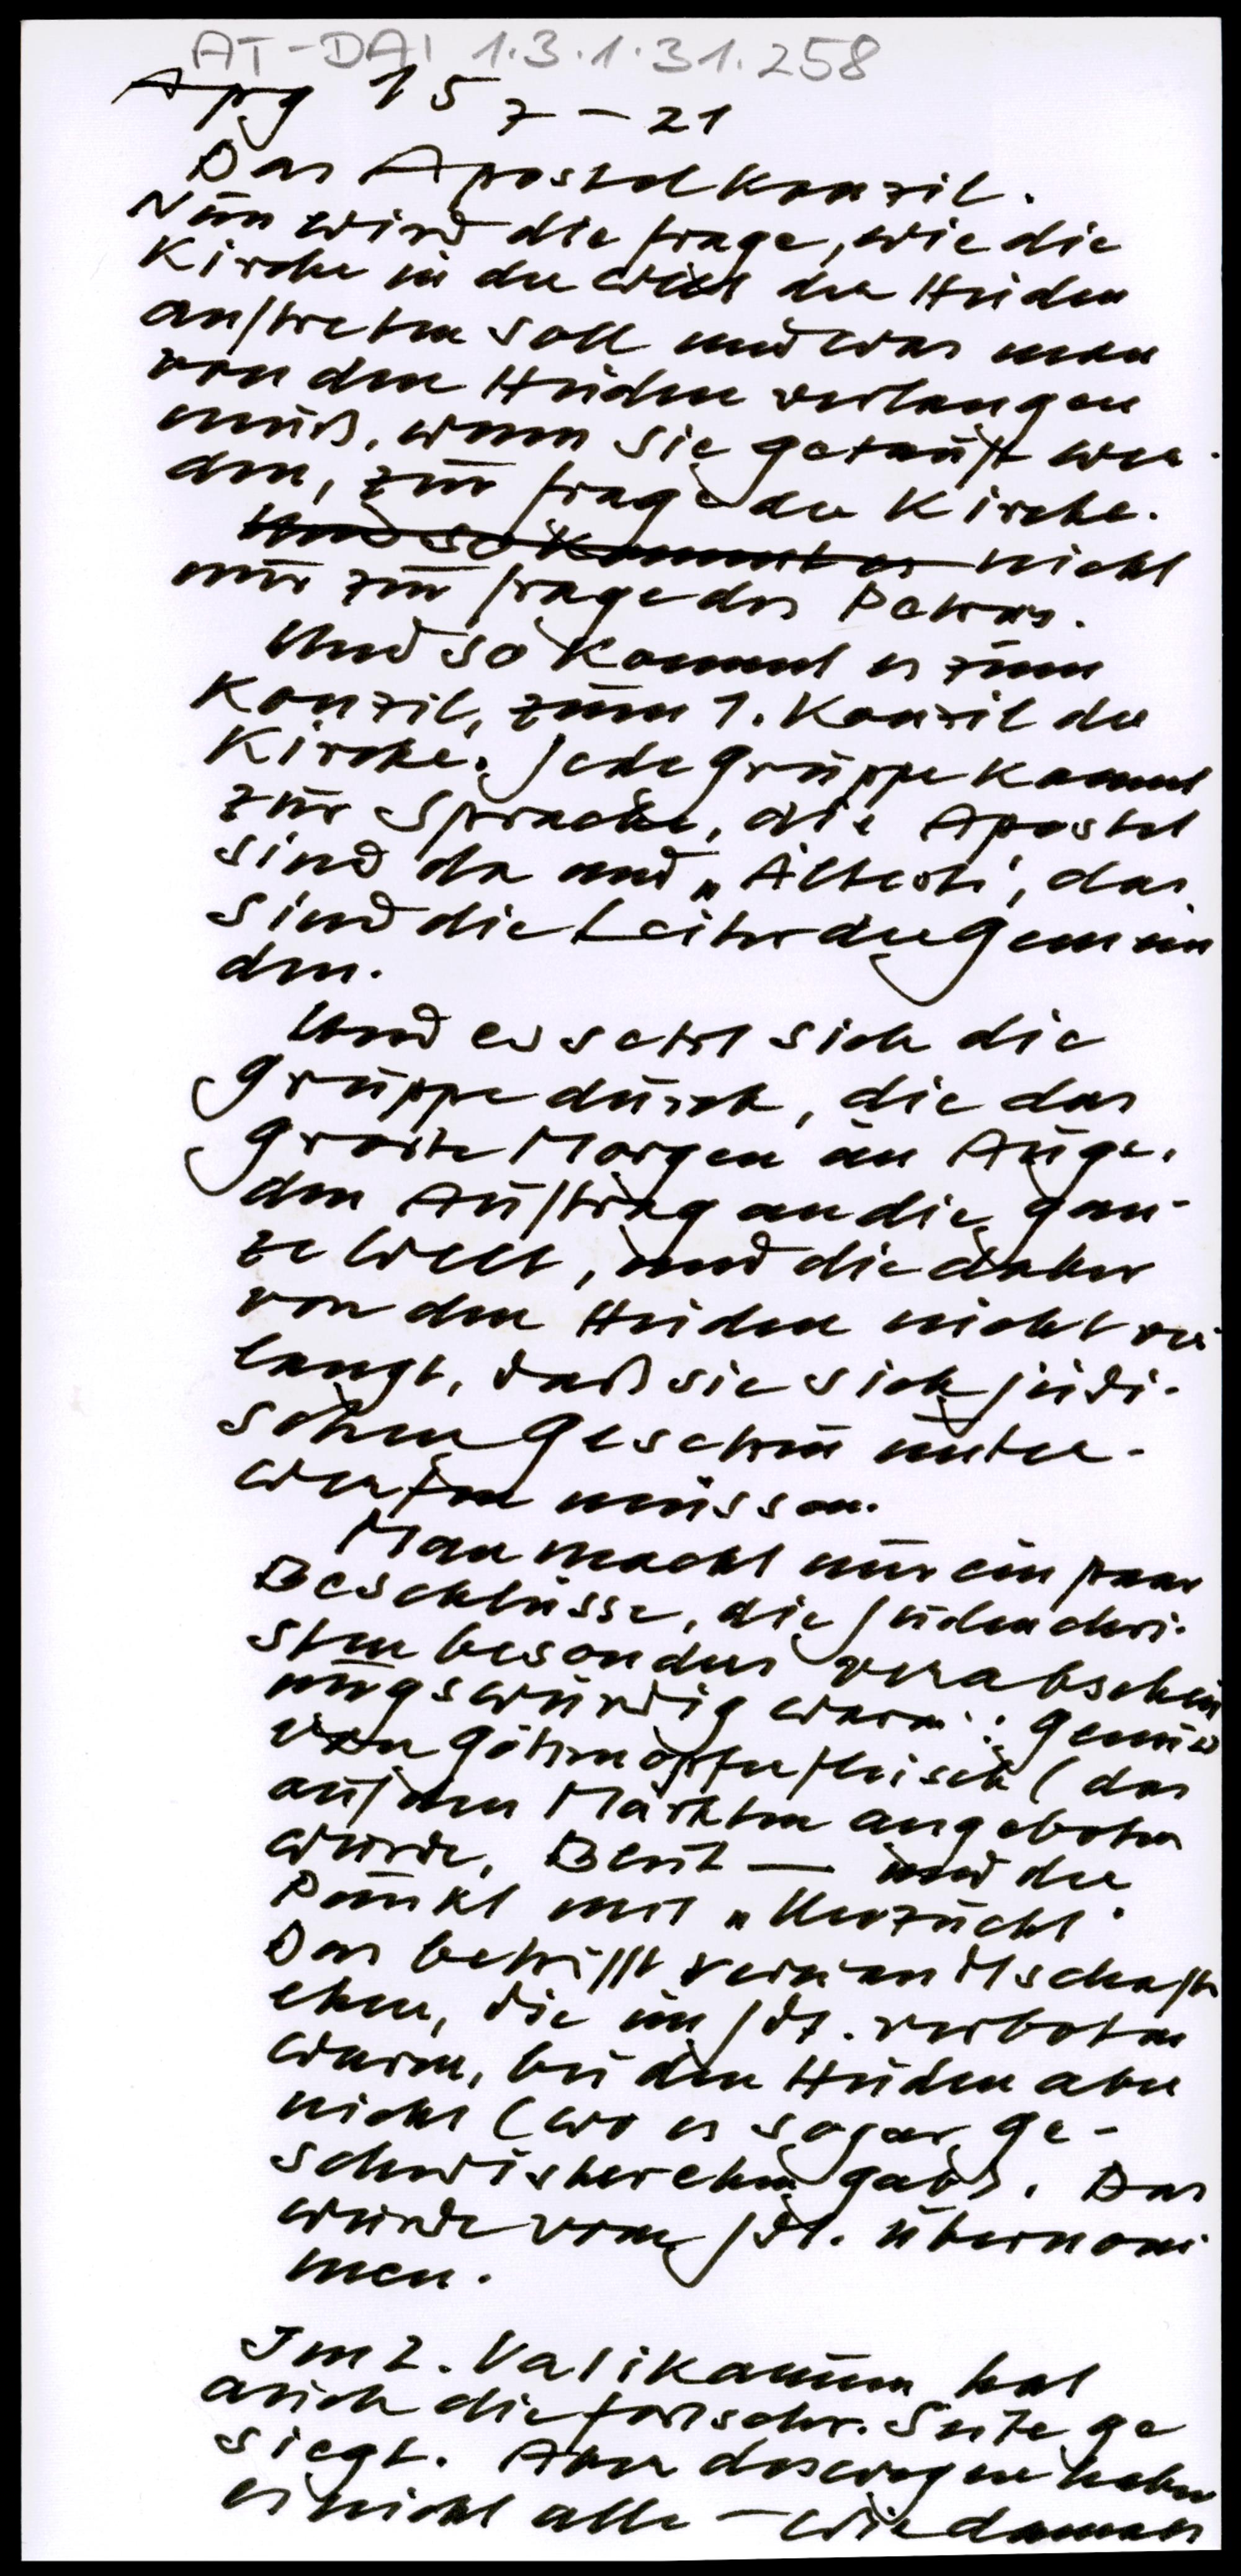 AT-DAI 1.3.1.31.258
Apg 15 7-21
Das Apostelkonzil.
Nun wird die Frage, wie die
Kirche in der Welt der Heiden
auftreten soll und was man
von den Heiden verlangen
muß, wenn sie getauft wer-
den, zur Frage der Kirche.
Und so kommt es nicht
nur zur Frage des Petrus.
Und so kommt es zum
Konzil, zum 1. Konzil der
Kirche. Jede Gruppe kommt
zur Sprache, die Apostel
sind da und „Älteste", das
sind die Leiter der Gemein
den.
Und es setzt sich die
Gruppe durch, die das
große Morgen im Auge,
den Auftrag an die gan-
ze Welt, und die daher
von den Heiden nicht ver
langt, daß sie sich jüdi-
schen Gesetzen unter-
werfen müssen.
Man macht nur ein paar
Beschlüsse, die Judenchri-
sten besonders verabscheu
ungswürdig waren: Genuss
von Götzenopferfleisch (das
auf den Märkten angeboten
wurde, Blut — und der
Punkt mit „Unzucht"
Das betrifft verwandtschafts
ehen, die im Jdt. verboten
waren, bei den Heiden aber
nicht (wo es sogar Ge-
schwisterehen gab). Das
wurde vom Jdt. übernom
men.
Im 2. Vatikanum hat
auch die fortschr. Seite ge
siegt. Aber deswegen haben
es nicht alle – wie damals